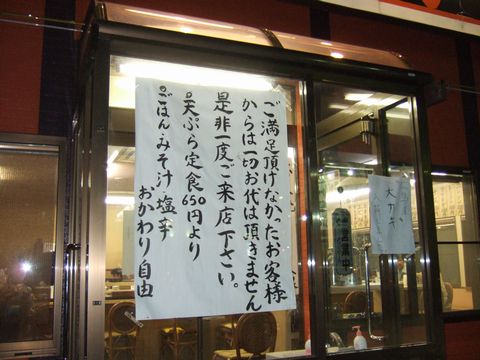 ご満足頂けなかったお客様
からは一切お代は頂きません
是非一度ご来店下さい。
◎天ぷら定食650円より
◎ごはんみそ汁塩辛
おかわり自由